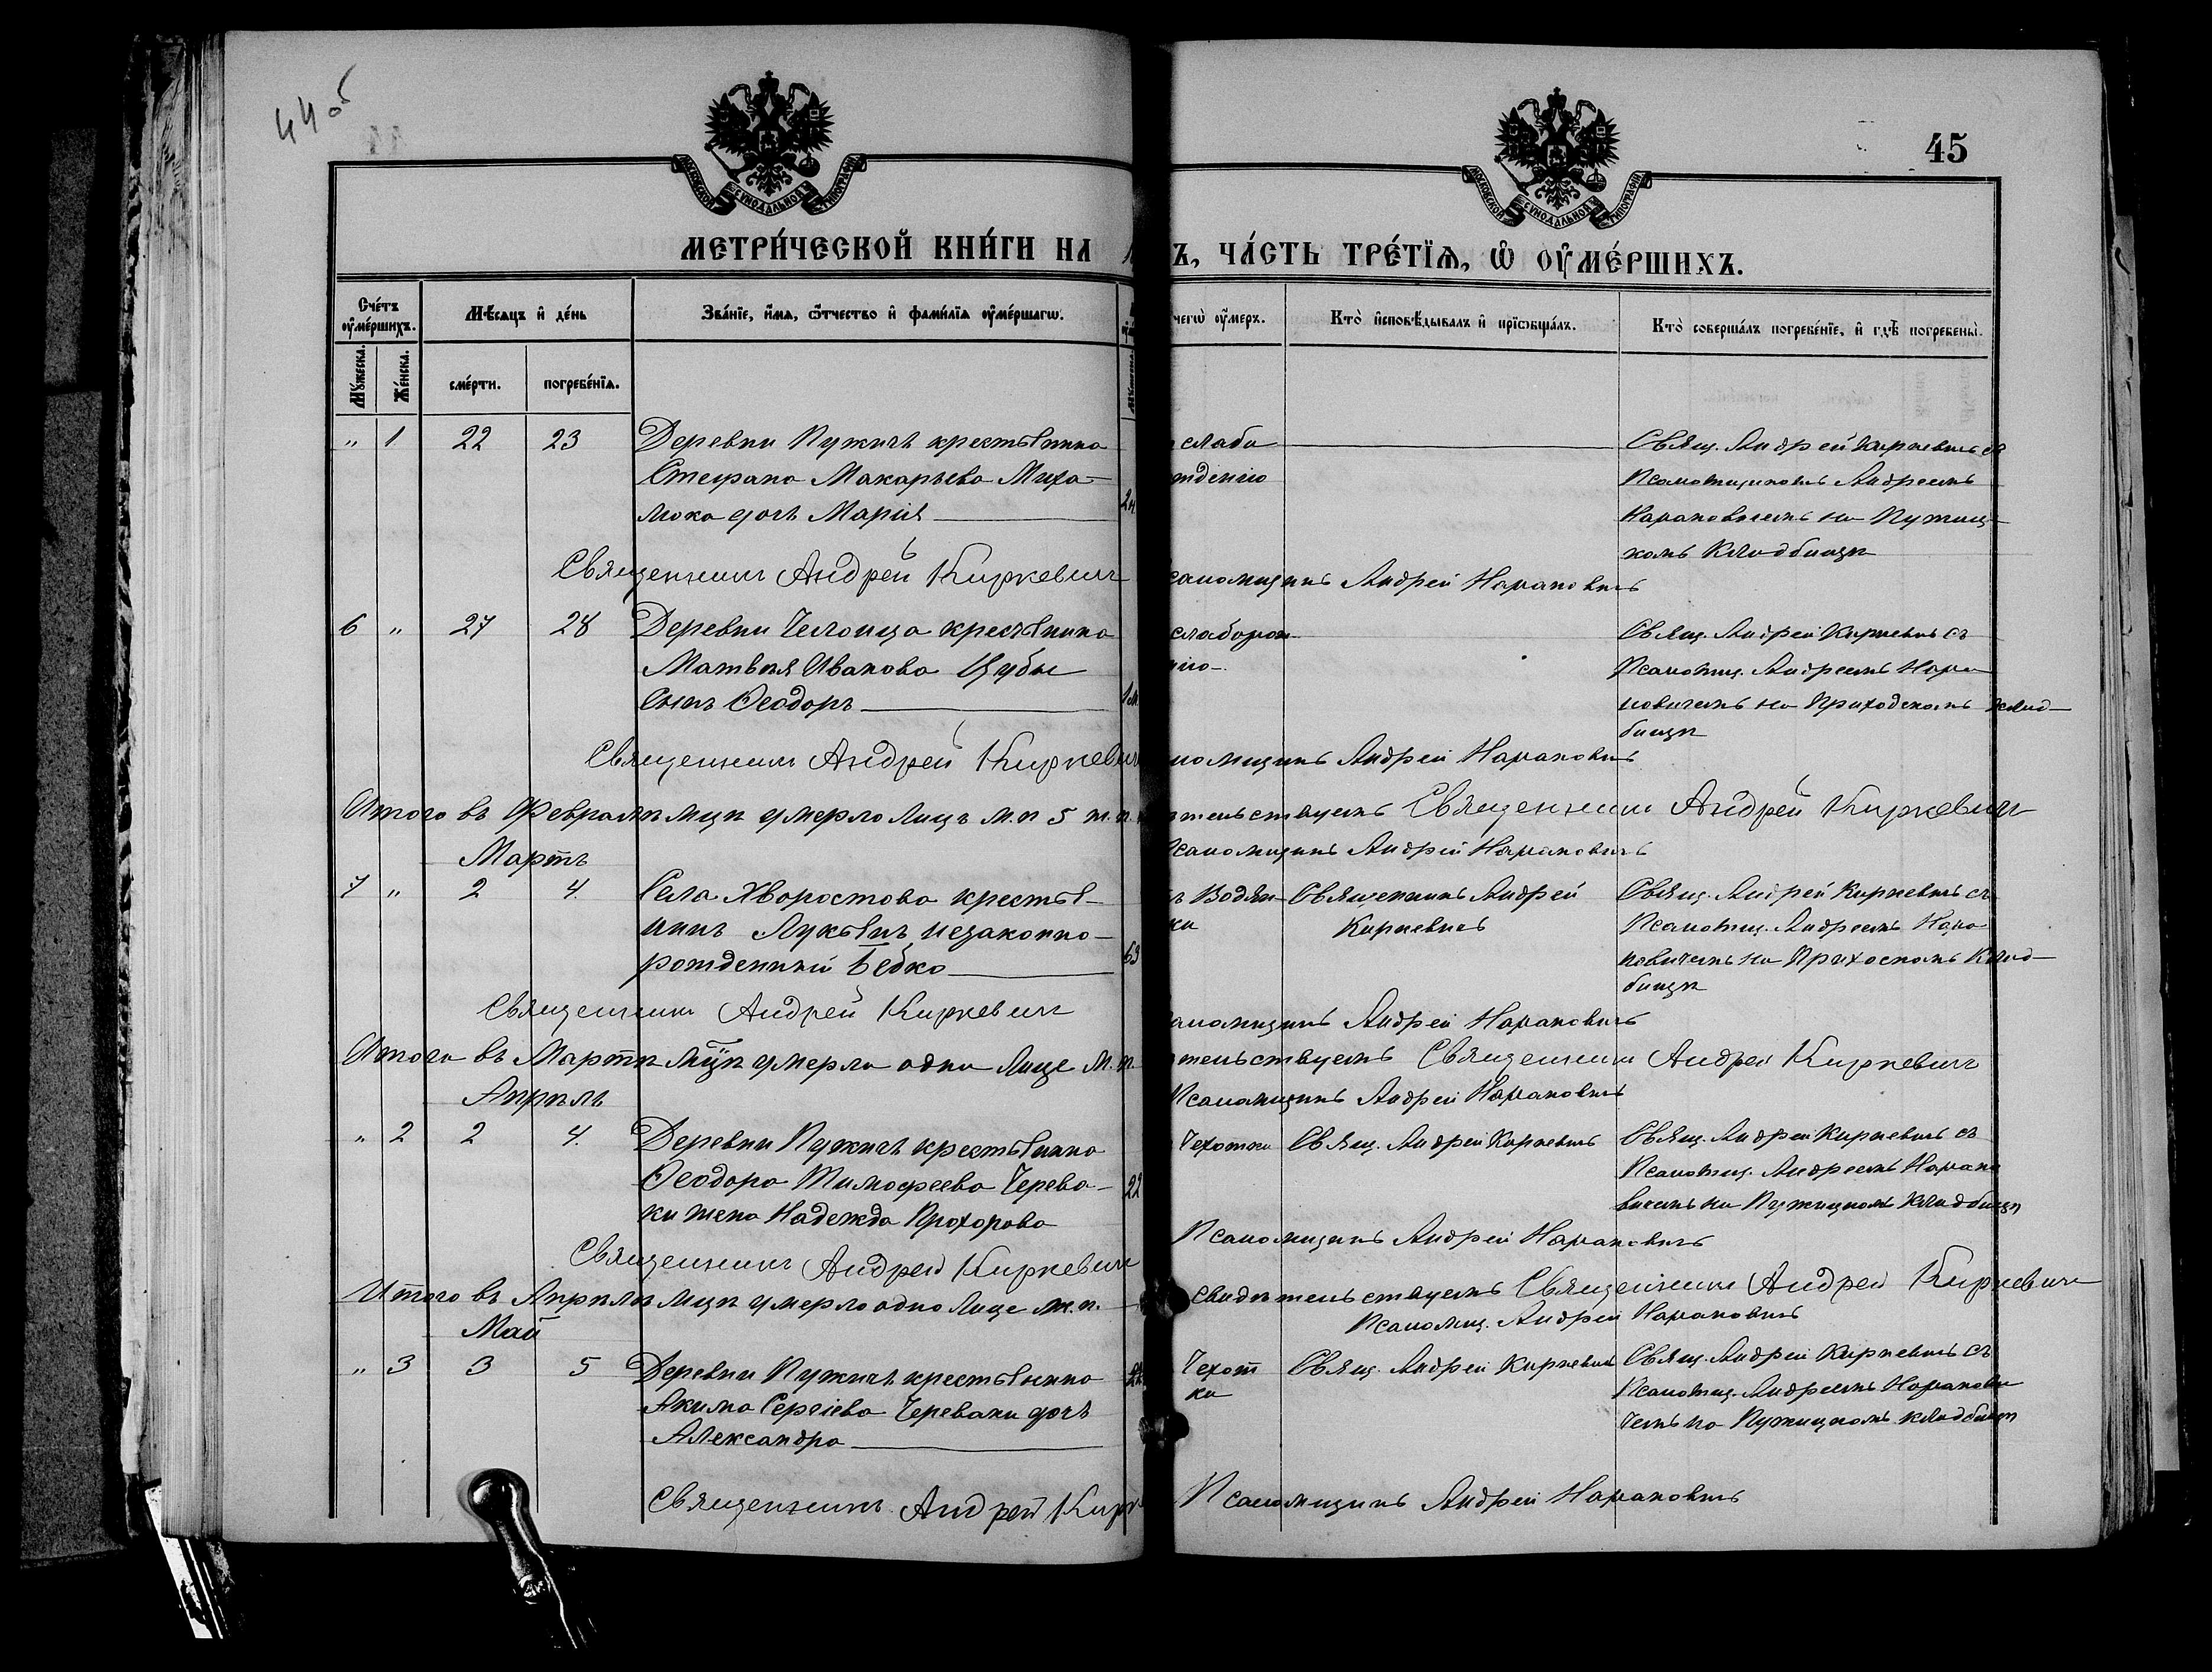 44об
45
МОСКОВСКОЙ СѴНОДАЛЬНОЙ ТИПОГРАФІИ
МОСКОВСКОЙ СѴНОДАЛЬНОЙ ТИПОГРАФІИ
МЕТРИ́ЧЕСКОЙ КНИ́ГИ НА 1
Ъ, ЧА́СТЬ ТРЕ́ТІѦ, Ѡ ОУМЕ́РШИХЪ.
Сче́тъ оуме́ршихъ.
Мѣсяцъ и де́нь
Зва́нїе, и́мя, ѻ҆́тчество и фами́лїя оуме́ршагѡ.
чегѡ̀ оу́меръ.
Кто̀ исповѣ́дывалъ и прїѡбща́лъ.
Кто̀ соверша́лъ погребе́нїе, и гдѣ̀ погребены̀.
Му́жеска.
Же́нска.
сме́рти.
погребе́нїя.
" 1 22 23 Деревни Пужичъ крестьянина
Стефана Макарьева Миха-
люка дочь Марія 2н.
слаба
жденію
Свящ. Андрей Киркевичъ съ
Псаломщикомъ Андреемъ
Нарановичемъ на Пужиц-
комъ кладбищѣ
Священникъ Андрей Киркевичъ
саломщикъ Андрей Нарановичъ
6 " 27 28 Деревни крестьянина
Матвѣя Иванова Цубы
сынъ Ѳеодоръ 1м.
слаборож
нію
Свящ. Андрей Киркевичъ съ
Псаломщ. Андреемъ Нара
новичемъ на Приходскомъ клад-
бищѣ
Священникъ Андрей Киркевич
ломщикъ Андрей Нарановичъ
Итого въ Февралѣ мцѣ умерло лицъ м.п 5 ж.п.
тельствуемъ Священникъ Андрей Киркевичъ
Псаломщикъ Андрей Нарановичъ
Мартъ
7 " 2 4. Села Хворостова крестья-
нинъ Лукьянъ незаконно-
рожденный Бебко 63
Водян-
ки
Священникъ Андрей
Киркевичъ
Свящ. Андрей Киркевичъ съ
Псаломщ. Андреемъ Нара
новичемъ на Прихоскомъ клад-
бищѣ
Священникъ Андрей Киркевичъ
аломщикъ Андрей Нарановичъ
Итого въ Мартѣ мцѣ умерло одно лице м.п.
тельствуемъ Священникъ Андрей Киркевичъ
Псаломщикъ Андрей Нарановичъ
Апрѣль
" 2 2 4. Деревни Пужичъ крестьянина
Ѳеодора Тимофеева Черева-
ки жена Надежда Прохорова 22
Чехотки
Свящ. Андрей Киркевичъ
Свящ. Андрей Киркевичъ съ
Псаломщ. Андреемъ Нарано
вичемъ на Пужицкомъ кладбищѣ
Священникъ Андрей Киркевич
Псаломщикъ Андрей Нарановичъ
Итого въ Апрѣлѣ мцѣ умерло одно лице ж.п.
свидѣтельствуемъ Священникъ Андрей Киркевичъ
Псаломщ. Андрей Нарановичъ
Май
" 3 3 5 Деревни Пужичъ крестьянина
Акима Сергіева Череваки дочь
Александра
Чехот
ки
Свящ. Андрей Киркевичъ
Свящ. Андрей Киркевичъ съ
Псаломщ. Андреемъ Наранови
чемъ на Пужицкомъ кладбищѣ
Священникъ Андрей Кирк
Псаломщикъ Андрей Нарановичъ